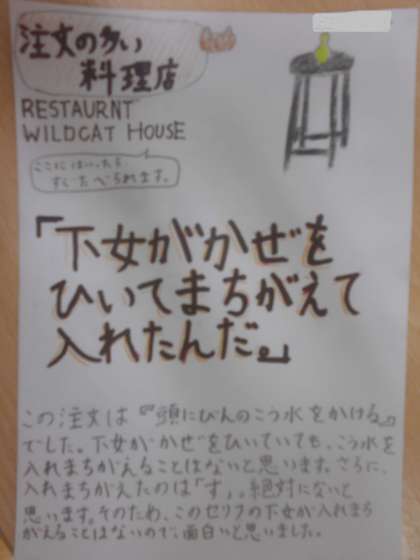 注文の多い
料理店
RESTAURNT
WILDCAT HOUSE
ここにはいったら
すぐたべられます。
「下女がかぜを
ひいてまちがえて
入れたんだ。」
この注文は『頭にびんのこう水をかける』
でした。下女がかぜをひいていても、こう水を
入れまちがえることはないと思います。さらに、
入れまちがえたのは「す」。絶対にないと
思います。そのため、このセリフの下女が入れまち
がえることはないので、面白いと思いました。